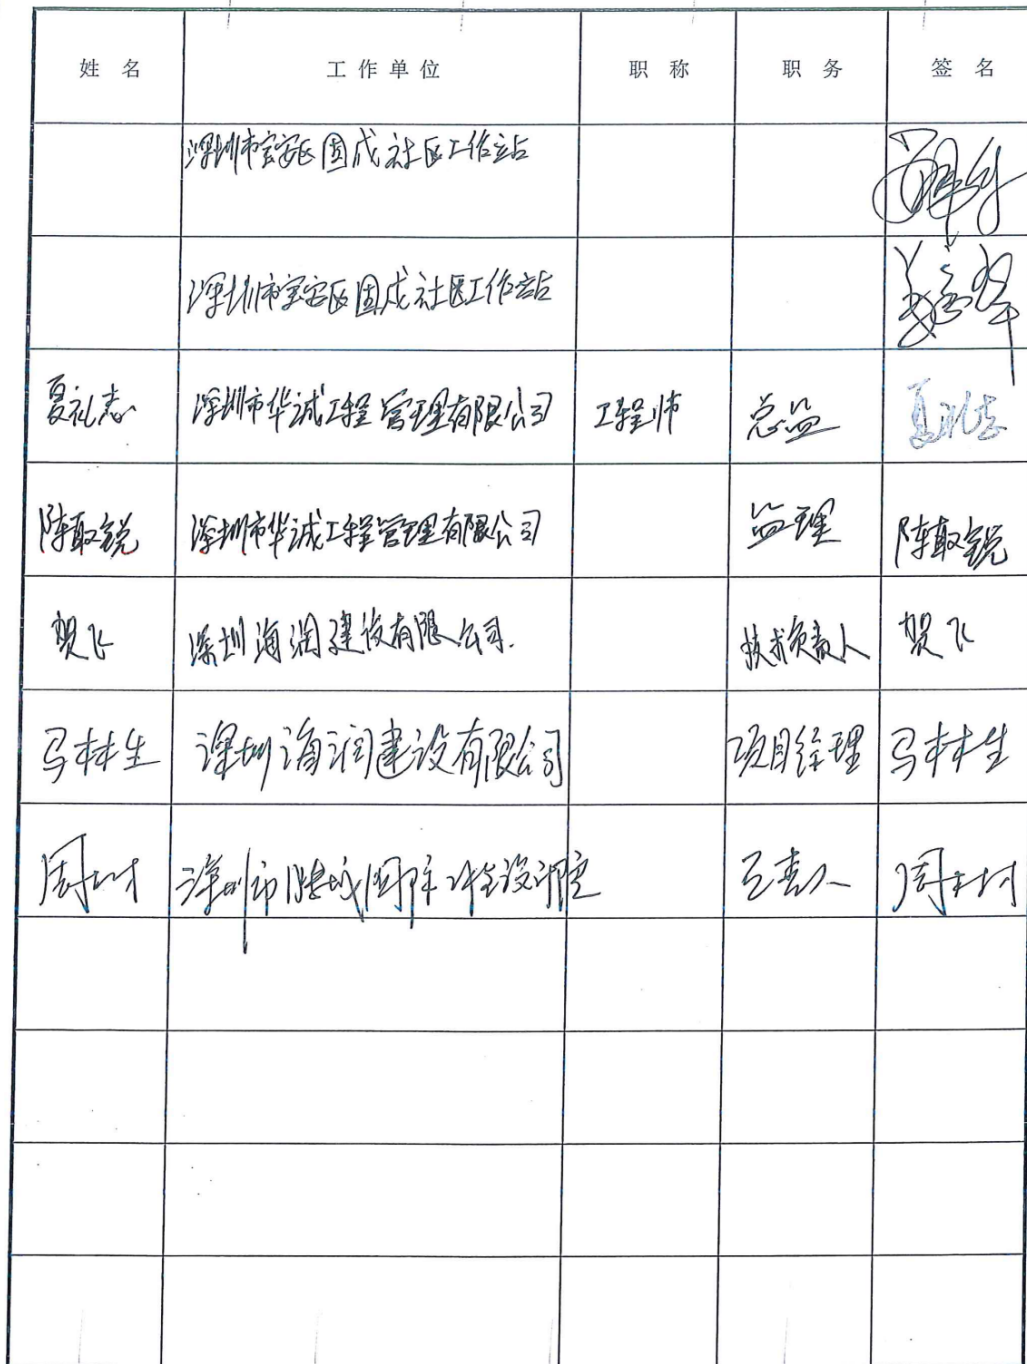 姓 名 工作单位 职 称 职 务 签 名
深圳市宝安区固戍社区工作站
深圳市宝安区固戍社区工作站
夏礼志 深圳市华诚工程管理有限公司 工程师 总监 夏礼志
陈取锐 深圳市华诚工程管理有限公司 监理 陈取锐
贺飞 深圳海润建设有限公司. 技术负责人 贺飞
马林生 深圳海润建设有限公司 项目经理 马林生
深圳市 设计院